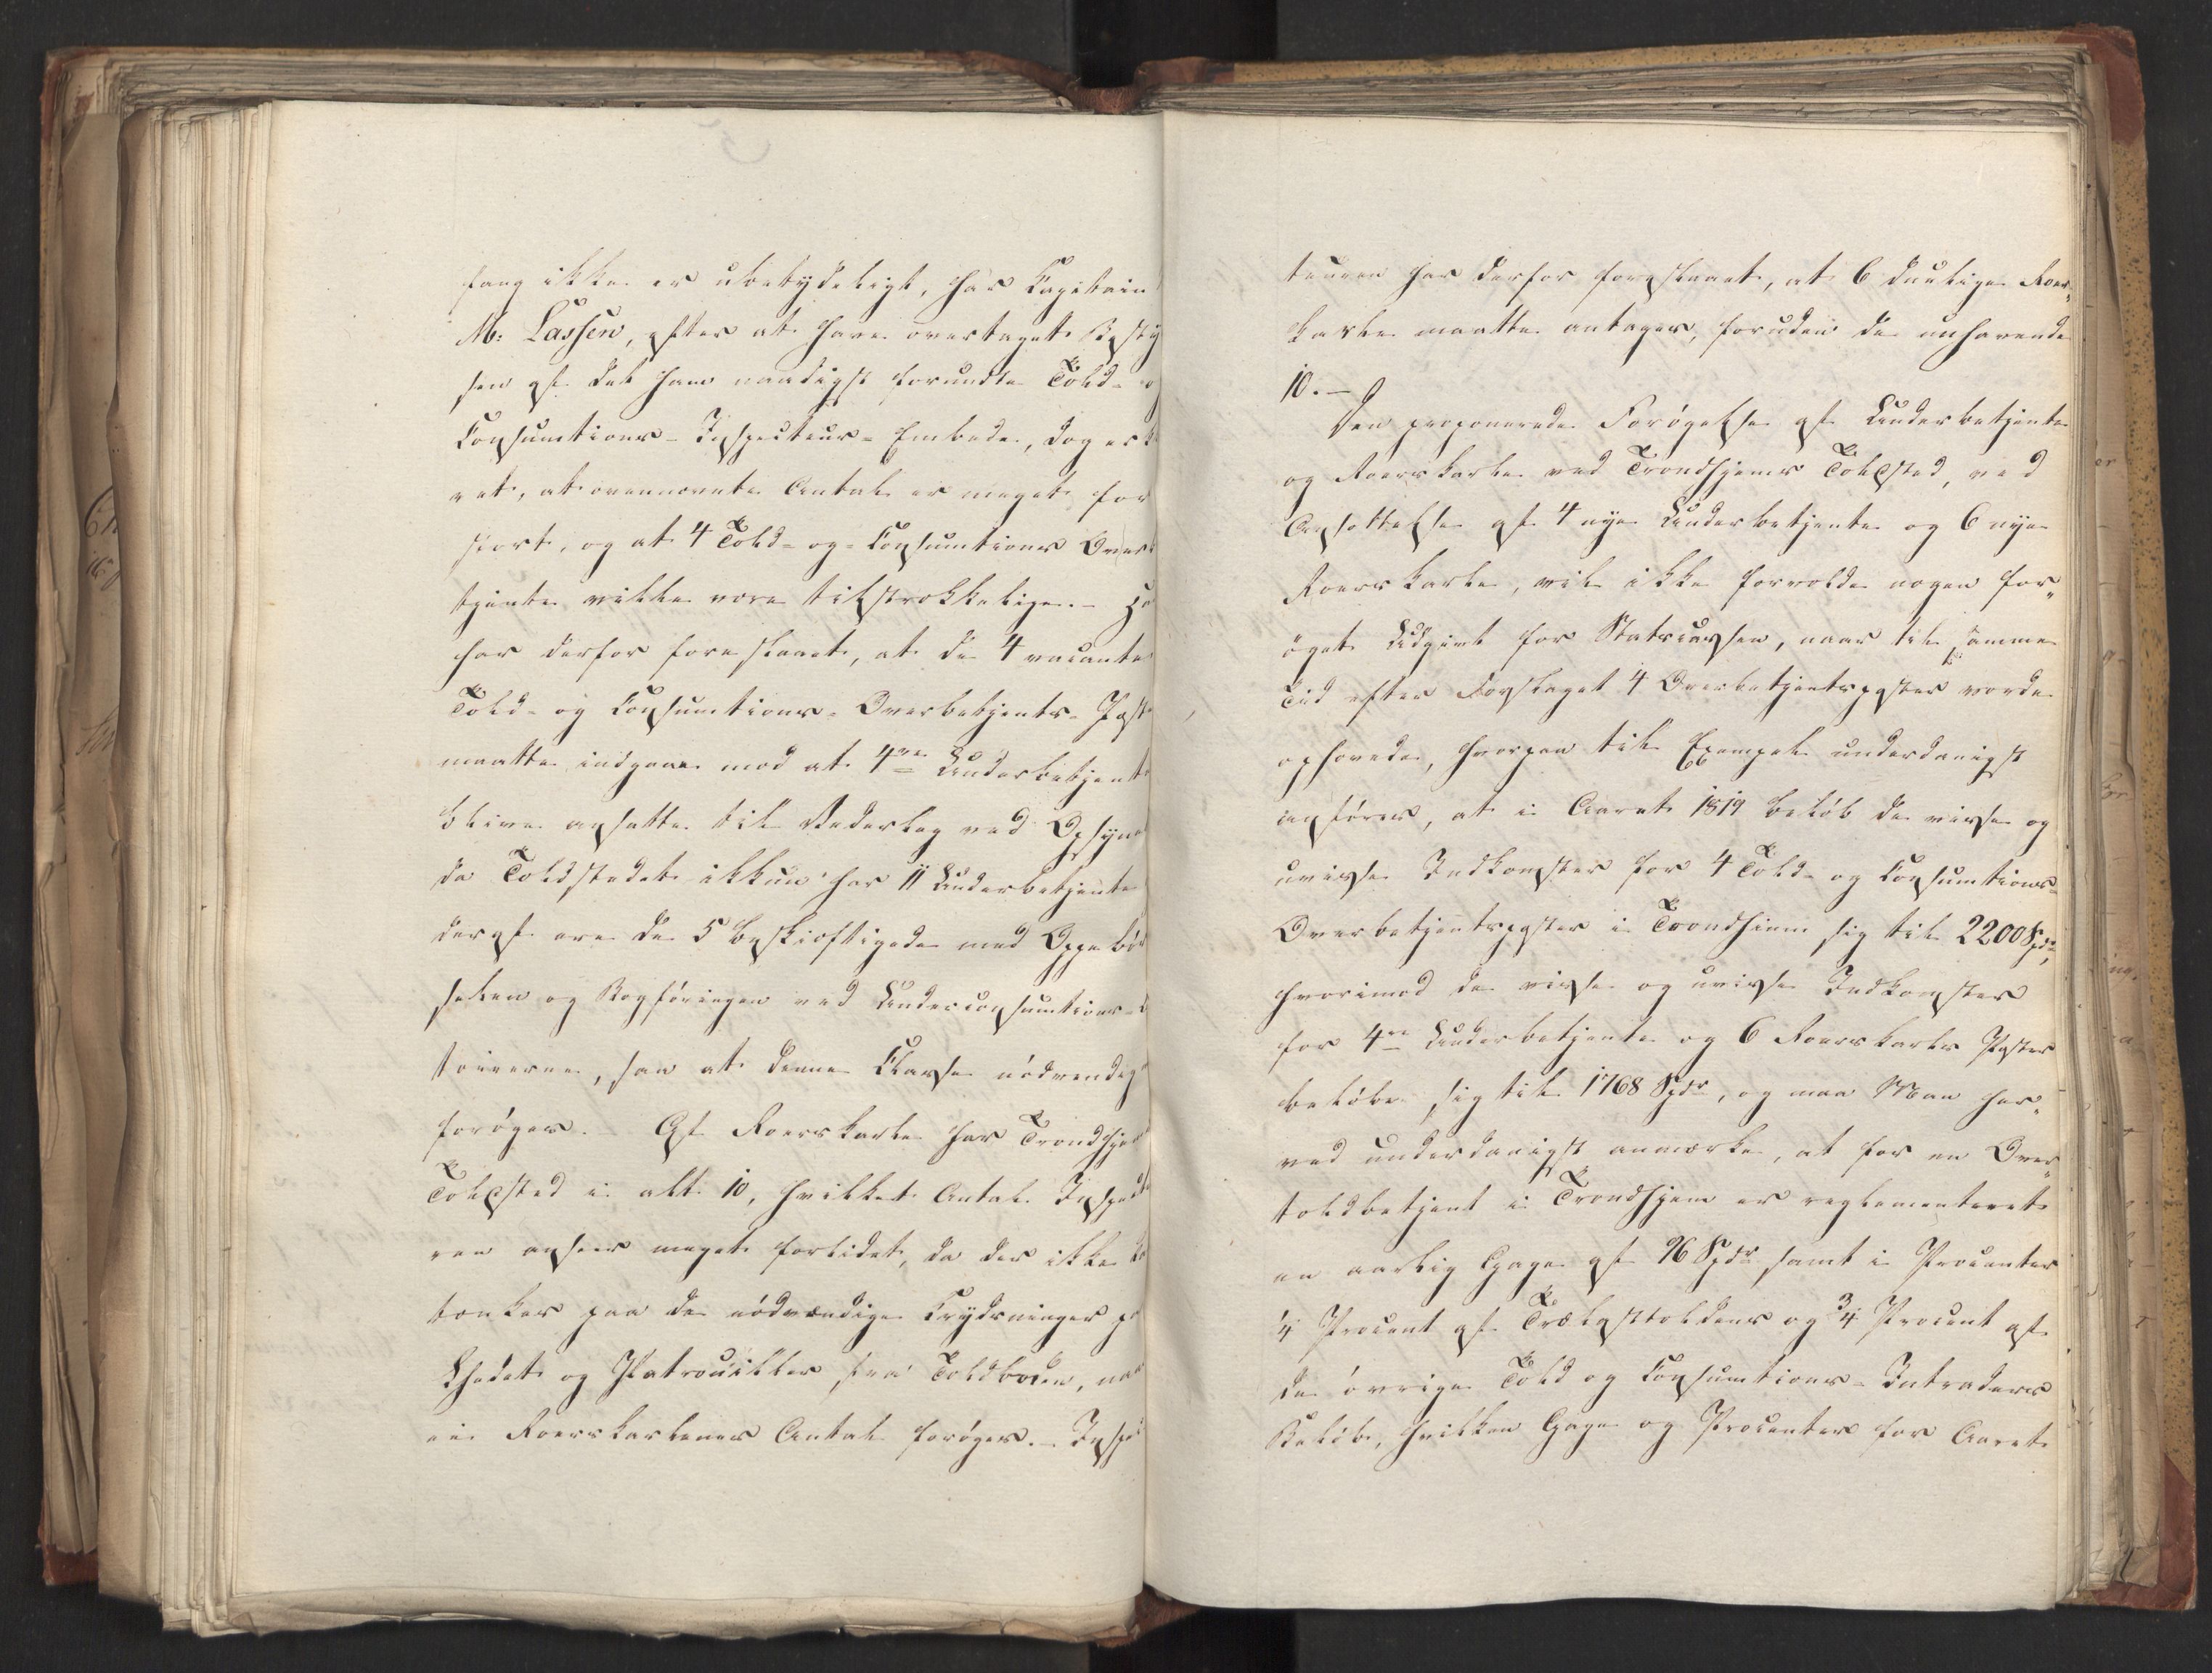 fang ikke er ubetydeligt, har Capitain
M: Lassen, efter at have overtaget Besty
sen af det ham naadigst forundte Told- o
Consumtions-Inspecteur-Embede, dog er
ret, at ovennævnte Antal er meget for
stort, og at 4 Told- og Consumtions Overb
tjente ville være tilstrækkelige.-
har derfor foreslaaet, at de 4 vacante
Told- og Consumtions-Overbetjents-Post
maatte indgaae mod at 4re Underbetjent
blive ansatte til Vederlag ved Opsyne
da Toldstedet ikkun har 11 Underbetjente
deraf ere de 5 beskjæftigede med Oppebør
selen og Bogføringen ved Underconsumtions-
toirerne, saa at denne Classe nødvendig
forøges. - Af Roerskarle har Trondhjem
Toldsted i alt 10, hvilket Antal Inspect
ren anseer meget forlidet, da der ikke k
tænkes paa de nødvendige Krydsninger p
Rhedet og Patrouiller fra Toldboden, na
ei Roerskarlenes Antal forøges. - Inspe
teuren har derfor foreslaaet, at 6 duelige Roers„
karle maatte antages, foruden de nuhavende
10. -
Den proponerede Forøgelse af Underbetjente
og Roerskarle ved Trondhjems Toldsted, ved
Ansættelse af 4 nye Underbetjente og 6 nye
Roerskarle, vil ikke forvolde nogen for„
øget Udgivt for Statscassen, naar til samme
Tid efter Forslaget 4 Overbetjentsposter vorde
ophævede, hvorpaa til Exempel underdanigst
anføres, at i Aaret 1819 beløb de visse og
uvisse Indkomster for 4 Told- og Consumtions-
Overbetjentsposter i Trondhiem sig til 2200 Spdr,
hvorimod de visse og uvisse Indkomster
for 4re Underbetjente og 6 Roerskarls Poster
beløbe sig til 1768 Spdr, og maa Man her„
ved underdanigst anmærke, at for en Over„
toldbetjent i Trondhjem er reglementeret
en aarlig Gage af 96 Spdr samt i Procenter
1/4 Procent af Trælasttoldens og 3/4 Procent af
de øvrige Told og Consumtions-Intraders
Beløb, hvilken Gage og Procenter for Aaret